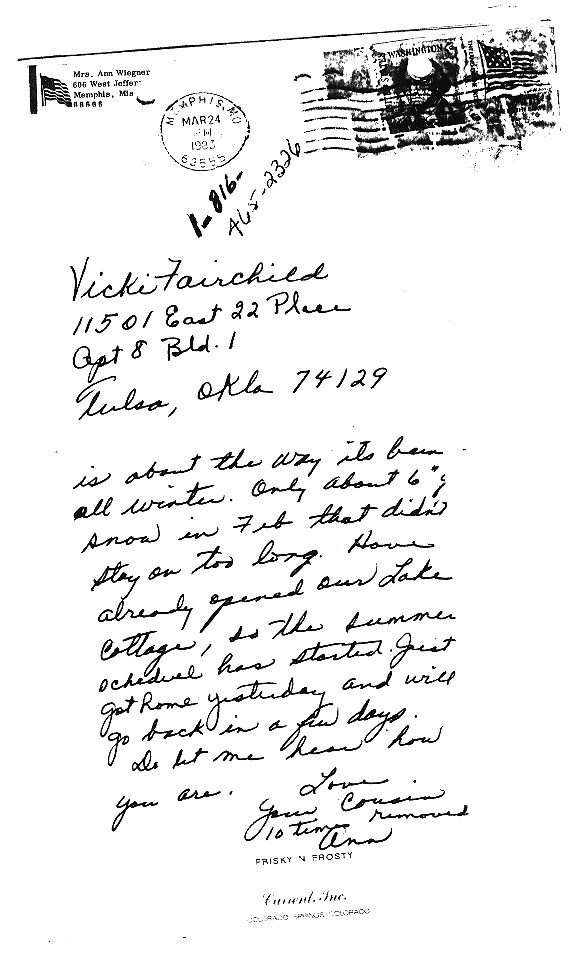 Mrs. Ann Wiegner
606 West Jeffer
Memphis, Mis
MEMPHIS, MO
MAR 24
PM
1983
63555
WASHINGTON
1-816-
465-2326
Vicki Fairchild
11501 East 22 Place
Apt 8 Bld. 1
Tulsa, Okla 74129
is about the way its been
all winter. Only about 6" of
snow in Feb that didn't
stay on too long. Have
already opened our Lake
Cottage, so the summer
schedule has started. Just
got home yesterday and will
go back in a few days.
Do let me hear how
you are.
Love
Your Cousin
10 times removed
Ann
FRISKY 'N FROSTY
Current, Inc.
COLORADO SPRINGS, COLORADO